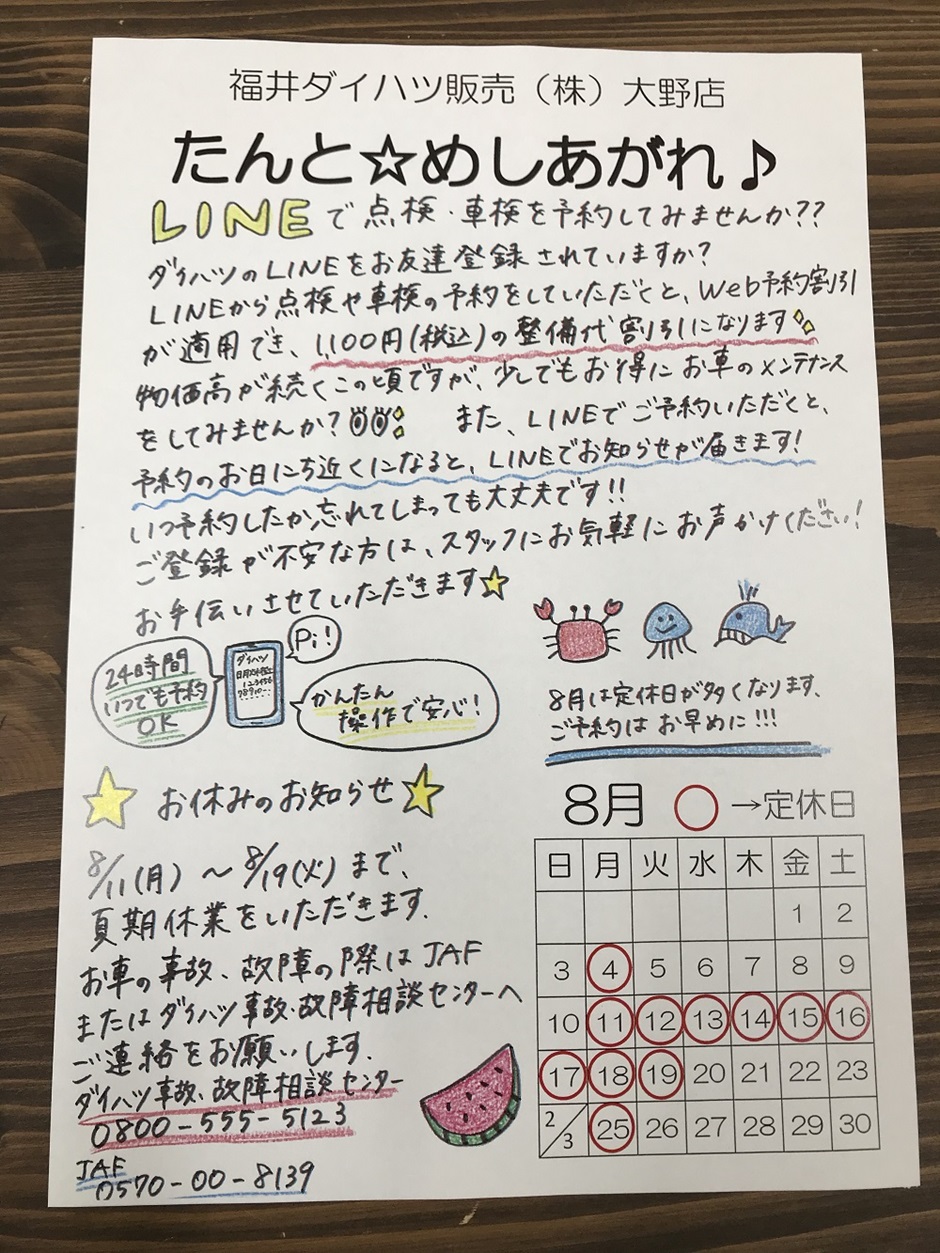 福井ダイハツ販売（株）大野店
たんと☆めしあがれ♪
LINEで点検・車検を予約してみませんか??
ダイハツのLINEをお友達登録されていますか?
LINEから点検や車検の予約をしていただくと、Web予約割引
が適用でき、1,100円(税込)の整備代割引になります
物価高が続くこの頃ですが、少しでもお得にお車のメンテナンス
をしてみませんか? また、LINEでご予約いただくと、
予約のお日にち近くになると、LINEでお知らせが届きます!
いつ予約したか忘れてしまっても大丈夫です!!
ご登録が不安な方は、スタッフにお気軽にお声かけください!
お手伝いさせていただきます☆
24時間
いつでも予約
OK
ダイハツ
日月火水木金土
123456
78910…
Pi!
かんたん
操作で安心!
8月は定休日が多くなります、
ご予約はお早めに!!!
☆お休みのお知らせ☆
8/11(月)～8/19(火)まで、
夏期休業をいただきます。
お車の事故、故障の際はJAF
またはダイハツ事故・故障相談センターへ
ご連絡をお願いします。
ダイハツ事故・故障相談センター
0800-555-5123
JAF
0570-00-8139
8月 ○→定休日
日 月 火 水 木 金 土
1 2
3 4 5 6 7 8 9
10 11 12 13 14 15 16
17 18 19 20 21 22 23
2/3 25 26 27 28 29 30